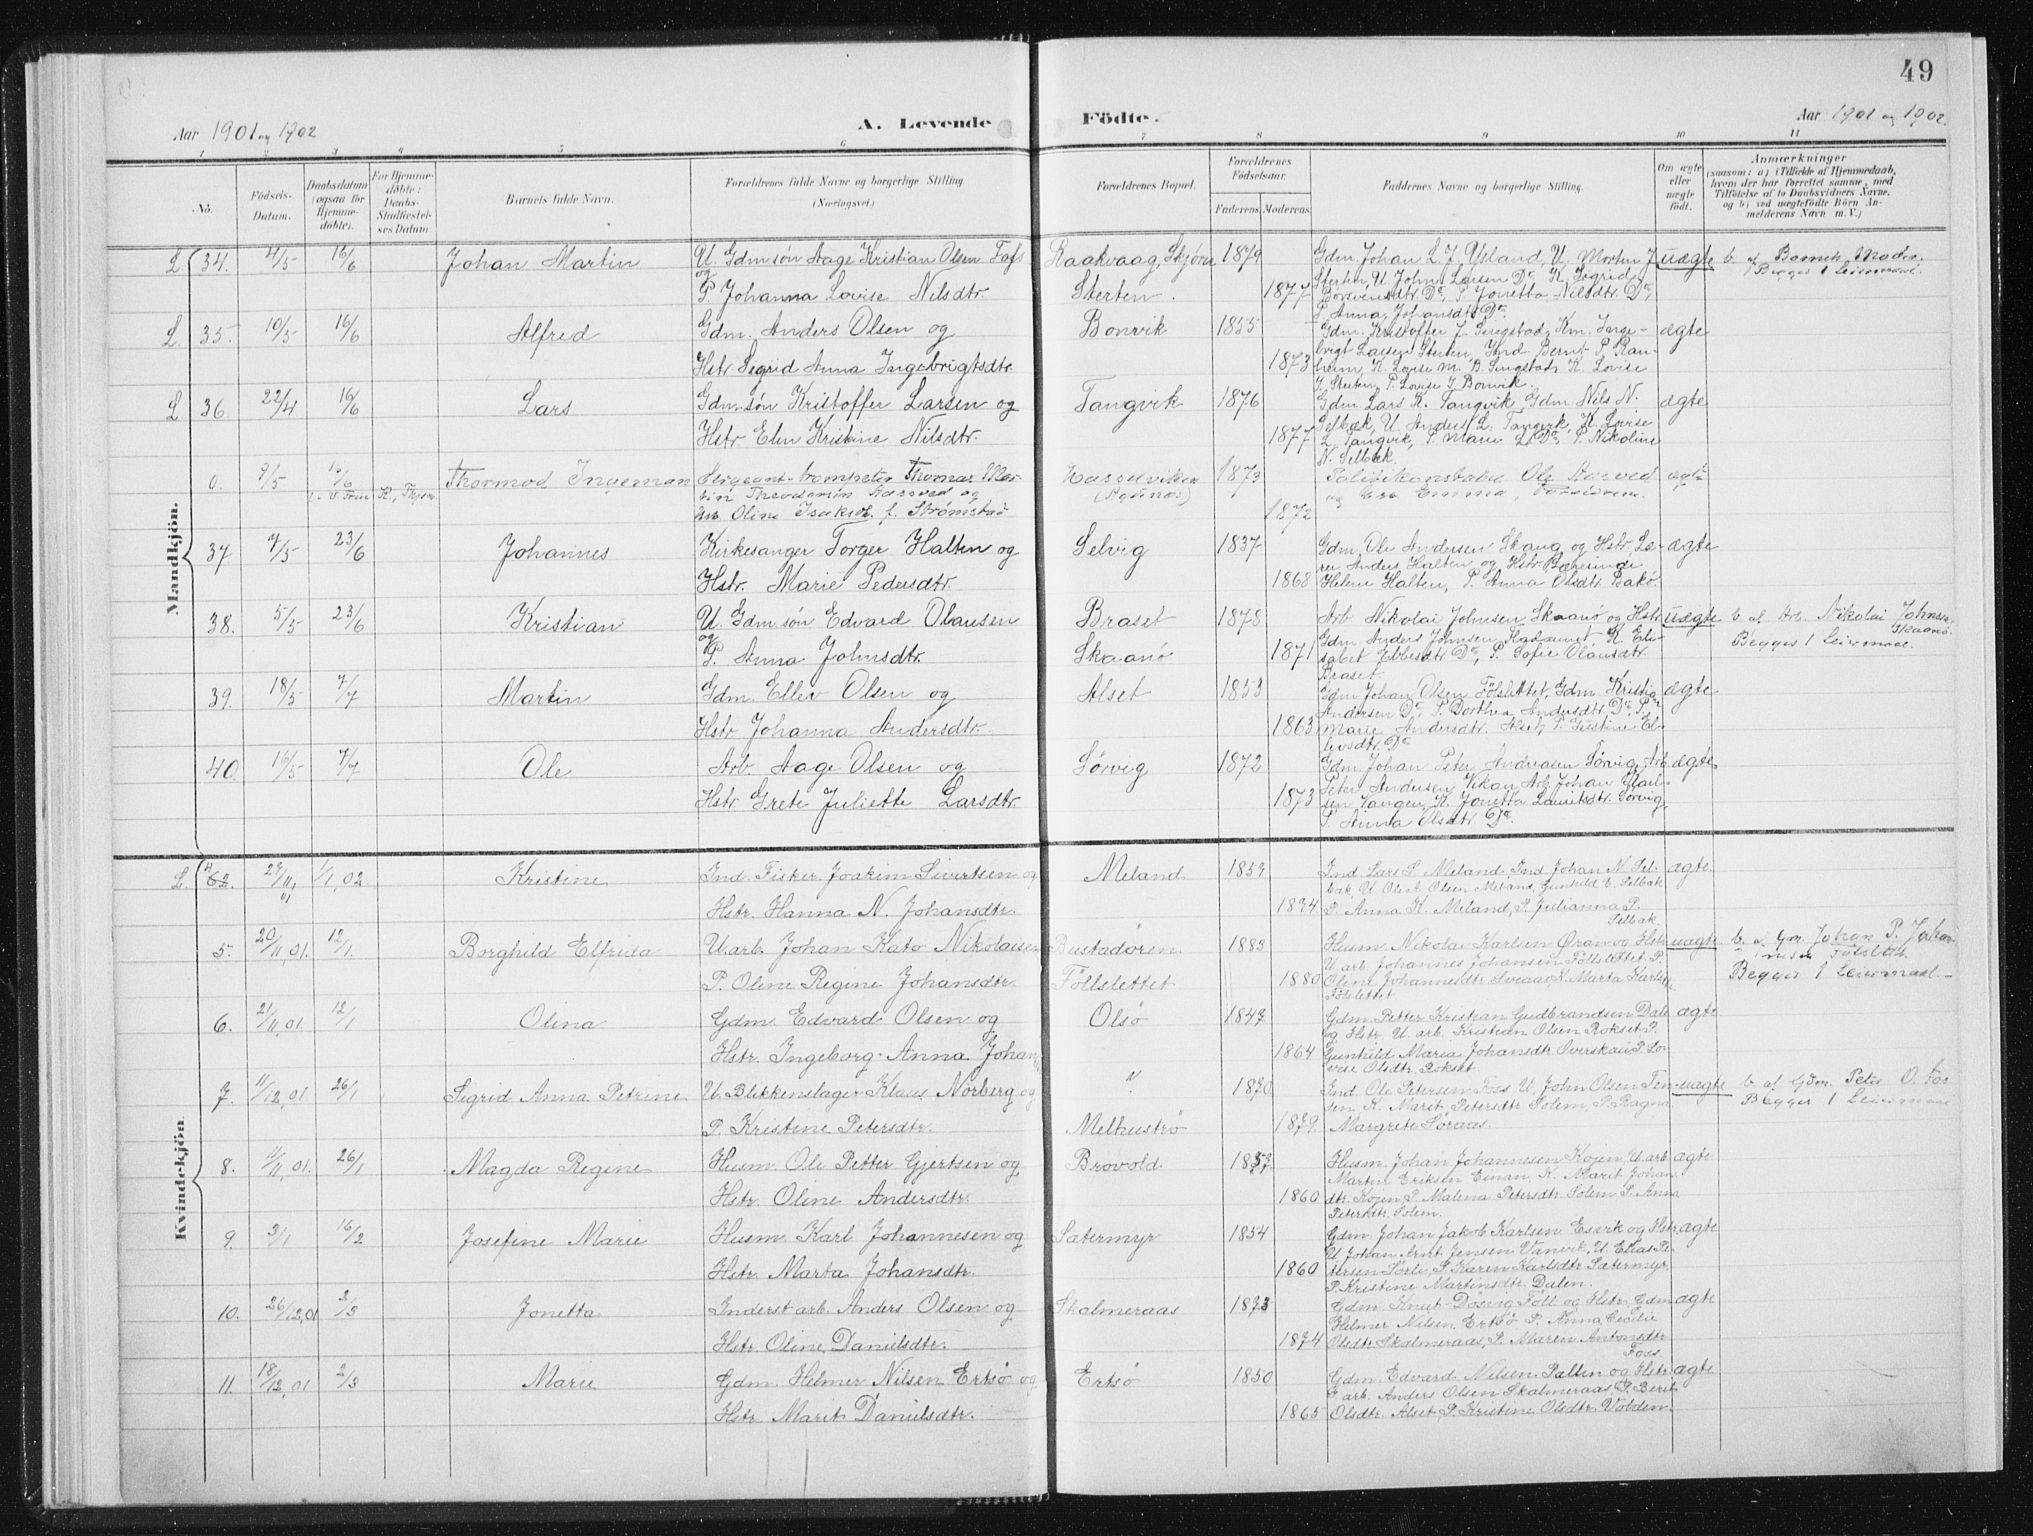 49
Aar 1901 og 1902
A. Levende Födte.
Aar 1901 og 1902.
1 2 3 4 5 6 7 8 9 10 11
No.
Födsels-Datum.
Daabsdatum (ogsaa for Hjemmedöbte).
For Hjemmedöbte: Daabs-Stadfæstelses Datum
Barnets fulde Navn.
Forældrenes fulde Navne og borgerlige Stilling (Næringsvei.)
Forældrenes Bopæl.
Forældrenes Födselsaar.
Faderens. Moderens.
Faddernes Navne og borgerlige Stilling.
Om ægte eller uægte födt.
Anmærkninger (saasom: a) i Tilfælde af Hjemmedaab, hvem der har forrettet samme, med Tilföielse af to Daabsvidners Navne, og b) ved uægtefödte Börn Anmelderens Navn m. V.)
Mandkjön.
L 34. 4/5 16/6 Johan Martin U. Gdmsön Aage Kristian Olsen Fos Raakvaag, Skjörn 1879 Gdm. Johan L. J. Ysland, U. Morten J. uægte b. af Barnets Moder.
og P. Johanna Lovise Nilsdtr. Sterten. 1877 Sterten, U. John Larsen Do, K. Sigrid Begges 1 Leiermaal.
P. Jonetta Nilsdtr. Do,
P. Anna Johansdtr Do.
L 35. 10/5 16/6 Alfred Gdm. Anders Olsen og Bonvik 1855 Gdm. Kristoffer J. Singstad, Km. Inge- ægte
Hstr Sigrid Anna Ingebrigtsdtr 1873 brigt Larsen Sterten, Ind Bernt P. Ran-
heim, K. Lovise M. B. Singstad, K. Lovise
J. Sterten, P. Lovise J. Bonvik.
L 36. 22/4 16/6 Lars Gdm.sön Kristoffer Larsen og Tangvik 1876 Gdm Lars K. Tangvik, Gdm Nils N. ægte
Hstr Elen Kristine Nilsdtr. 1877 Selbæk, U. Anders L. Tangvik, K. Lovise
L. Tangvik, P. Marie L. Do, P. Nikoline
N. Selbæk.
0. 9/5 Thormod Ingeman Sergeant-trompeter Thomas Mar- 1873 Politikonstabel Ole Aarsved ægte
tin Theodorsen Aarsved og (Agdenæs) og Emma,
Oline Isaksd. f. Strömstad 1872
37 7/5 23/6 Johannes Kirkesanger Torger Halten og Selvig 1837 Gdm. Ole Andersen Skaug og Hstr. Læ- ægte
Hstr. Marie Pedersdtr. 1868 rer Anders Halten og Hstr.
Helene Halten, P. Anna Olsdtr Bakö.
38. 5/5 23/6 Kristian U. Gdm.sön Edvard Olausen Braset 1878 Arb. Nikolai Johnsen Skaanö og Hstr uægte b. af Arb. Nikolai Johnsen
og P. Anna Johnsdtr. Skaanö 1871 Gdm. Anders Johnsen K. Eli- Skaanö. Begges 1 Leiermaal.
sabet Ebbesdtr Do, P. Sofie Olausdtr.
Braset.
39. 18/5 7/7 Martin Gdm. Ellev Olsen og Alset 1853 Gdm Johan Olsen Fölslettet, Gdm Kristia ægte
Hstr Johanna Andersdtr. 1863 Andersen Do, P. Dorthea Andersdtr Do, P.
Marie Andersdtr. Alset, P. Justine El-
levsdtr. Do
40. 16/5 7/7 Ole Arb. Aage Olsen og Sörvig 1872 Gdm Johan Peter Andreasen Sörvig, Arb ægte
Hstr. Grete Juliette Larsdtr. 1873 Peter Andersen Vikan Arb. Johan
Vangen, K. Jonetta Lauritsdtr. Sörvig,
P. Anna Olsdtr Do.
Kvindekjön
L. 4 62. 29/11,01 1/1,02. Kristine Ind. Fisker Joakim Sivertsen og Meland 1859 Ind. Lars P. Meland, Ind Johan N. Sel- ægte.
Hstr. Hanna N. Johansdtr. 1874 bak U. Olsen Meland, Gunhild E. Selbak
P. Anna K. Meland, P. Julianna P.
Selbak.
5. 20/11,01. 12/1. Borghild Elfrida U.arb. Johan Kato Nikolaisen Bustadören 1883 Husm. Nikolai Karlsen Øran og Hstr uægte b. af Gm. Johan P. Johan-
P. Oline Regine Johansdtr. Föllslettet 1880 U arb. Johannes Johansen Föllslettet P. nesen Fölslett.
Oline Johannesdtr. Sveaas, K. Marta Karls Begges 1 Leiermaal.
Fölslettet
6. 21/11,01. 12/1 Olina Gdm. Edvard Olsen og Olsö 1847 Gdm. Petter Kristian Gudbrandsen Dale ægte
Hstr. Ingeborg-Anna Johan 1864 og Hstr. U. arb. Kristian Olsen Rokset P.
Gunhild Maria Johansdtr Overskau P. Lo-
vise Olsdtr. Rokset
7. 11/12,01. 26/1 Sigrid Anna Petrine U. Blikkenslager Klaus Norberg og " 1870 Ind. Ole Petersen Foss U. John Olsen Ten- uægte b. af Gdm. Peter O. Fos
P. Kristine Petersdtr. Melhuströ 1879. sen, K. Marit Petersdtr. Solem, P. Ragna Begges 1 Leiermaal
Margrete Söraas.
8. 11/11,01. 26/1 Magda Regine Husm. Ole Petter Gjertsen og Brovold 1857 Husm. Johan Johannesen Kojen U. arb ægte
Hstr. Oline Andersdtr. 1860 Martin Eriksen Einan, K. Marit Johan.
dtr. Kojen P. Malena Petersdtr. Solem P. Anna
Petersdtr. Solem.
9. 3/1 16/2 Josefine Marie Husm. Karl Johannesen og Sætermyr 1854 Gdm. Johan Jakob Karlsen Esvik og Hstr. ægte
Hstr. Marta Johansdtr. 1860 U. Johan Arnt Jensen Vanvik, U. Elias Pe-
tersen Sörli, P. Karen Karlsdtr Sætermyr,
P. Kristine Martinsdtr. Dalen.
10. 26/12,01 2/3 Jonetta Inderst arb. Anders Olsen og Skalmeraas 1873 Gdm. Knut Dösvig Föll og Hstr. Gdm ægte
Hstr. Oline Danielsdtr. 1874 Helmer Nilsen Ertsö P. Anna Cecilie
Olsdtr Skalmeraas, P. Maren Antonsdtr
Foss.
11. 18/12,01 2/3 Marie Gdm. Helmer Nilsen Ertsö og Ertsö 1850 Gdm. Edvard Nilsen Palten og Hstr. ægte
Hstr. Marit Danielsdtr. 1865 arb. Anders Olsen Skalmeraas, P. Berit
Olsdtr. Alset, P. Kristine Olsdtr. Volden.